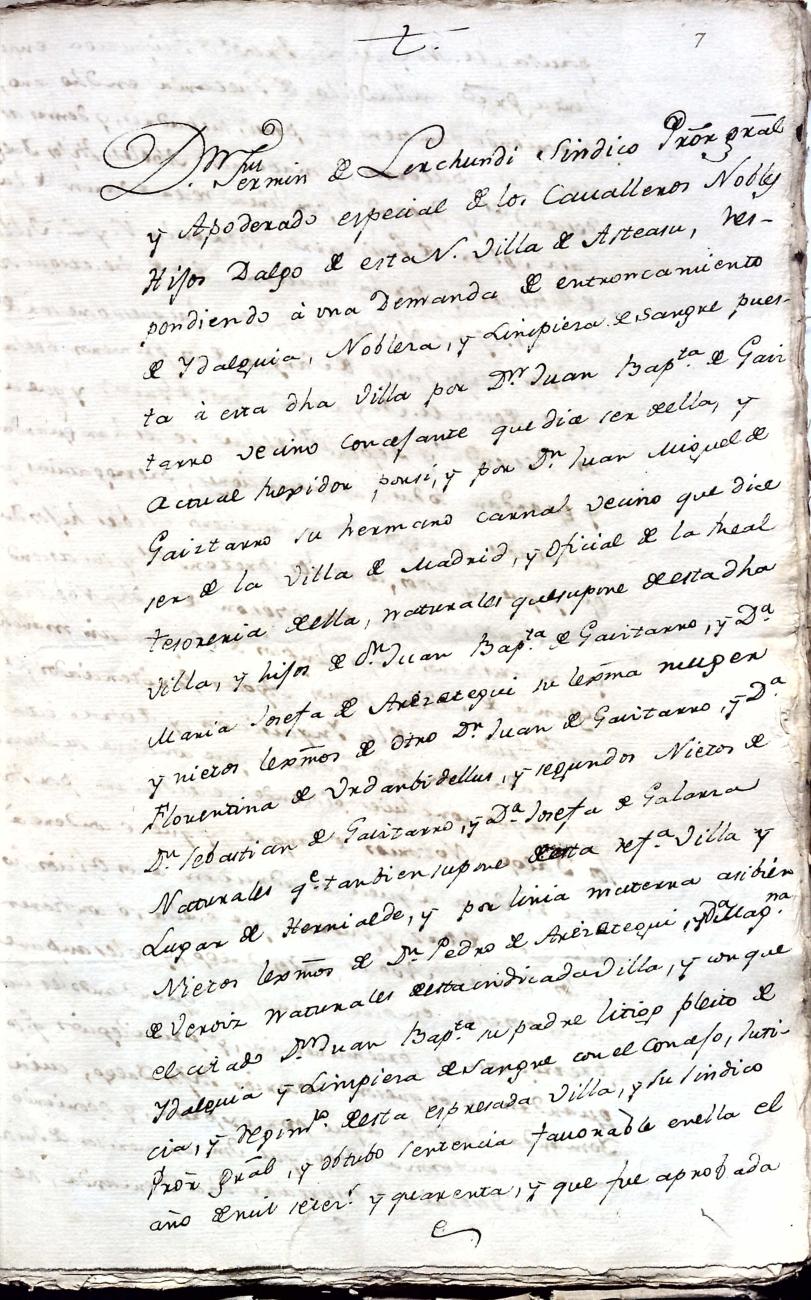 t.
7
D.n Fermin de Lerchundi Sindico Pror gral
y Apoderado especial de los Cavalleros Nobles
Hijos Dalgo de esta N. Villa de Asteasu, res-
pondiendo à una Demanda de entroncamiento
de Ydalguia, Nobleza, y Limpieza de Sangre pues-
ta à esta dha Villa por Dn Juan Bap.ta de Gaiz
tarro vecino concejante que dice ser della, y
Actual rexidor porsi, y por Dn Juan Miguel de
Gaiztarro su hermano carnal vecino que dice
ser de la Villa de Madrid, y Oficial de la Real
tesoreria della, naturales quesupone de esta dha
Villa, y hijos de dn Juan Bap.ta de Gaiztarro, y Da
Maria Josefa de Areizategui su lexma muger
y nietos lexmos de otro Dn Juan de Gaiztarro, y Da
Florentina de Urdanbidellus, y segundos Nietos de
Dn Sebastian de Gaiztarro, y Da Josefa de Galarza
Naturales q.e tanbien supone desta ref.a Villa y
Lugar de Hernialde, y por linia materna asibien
Nietos lexmos de Dn Pedro de Areizategui, y Da Mag.na
de Veroiz Naturales desta indicada Villa, y con que
el citado Dn Juan Bap.ta su padre litigò pleito de
Ydalguia y Limpieza de Sangre con el Concejo, Justi-
cia, y Regim.to desta espresada Villa, y su Sindico
Pror gral, y obtubo sentencia favorable enella el
año de mil setec.s y quarenta, y que fue aprobada